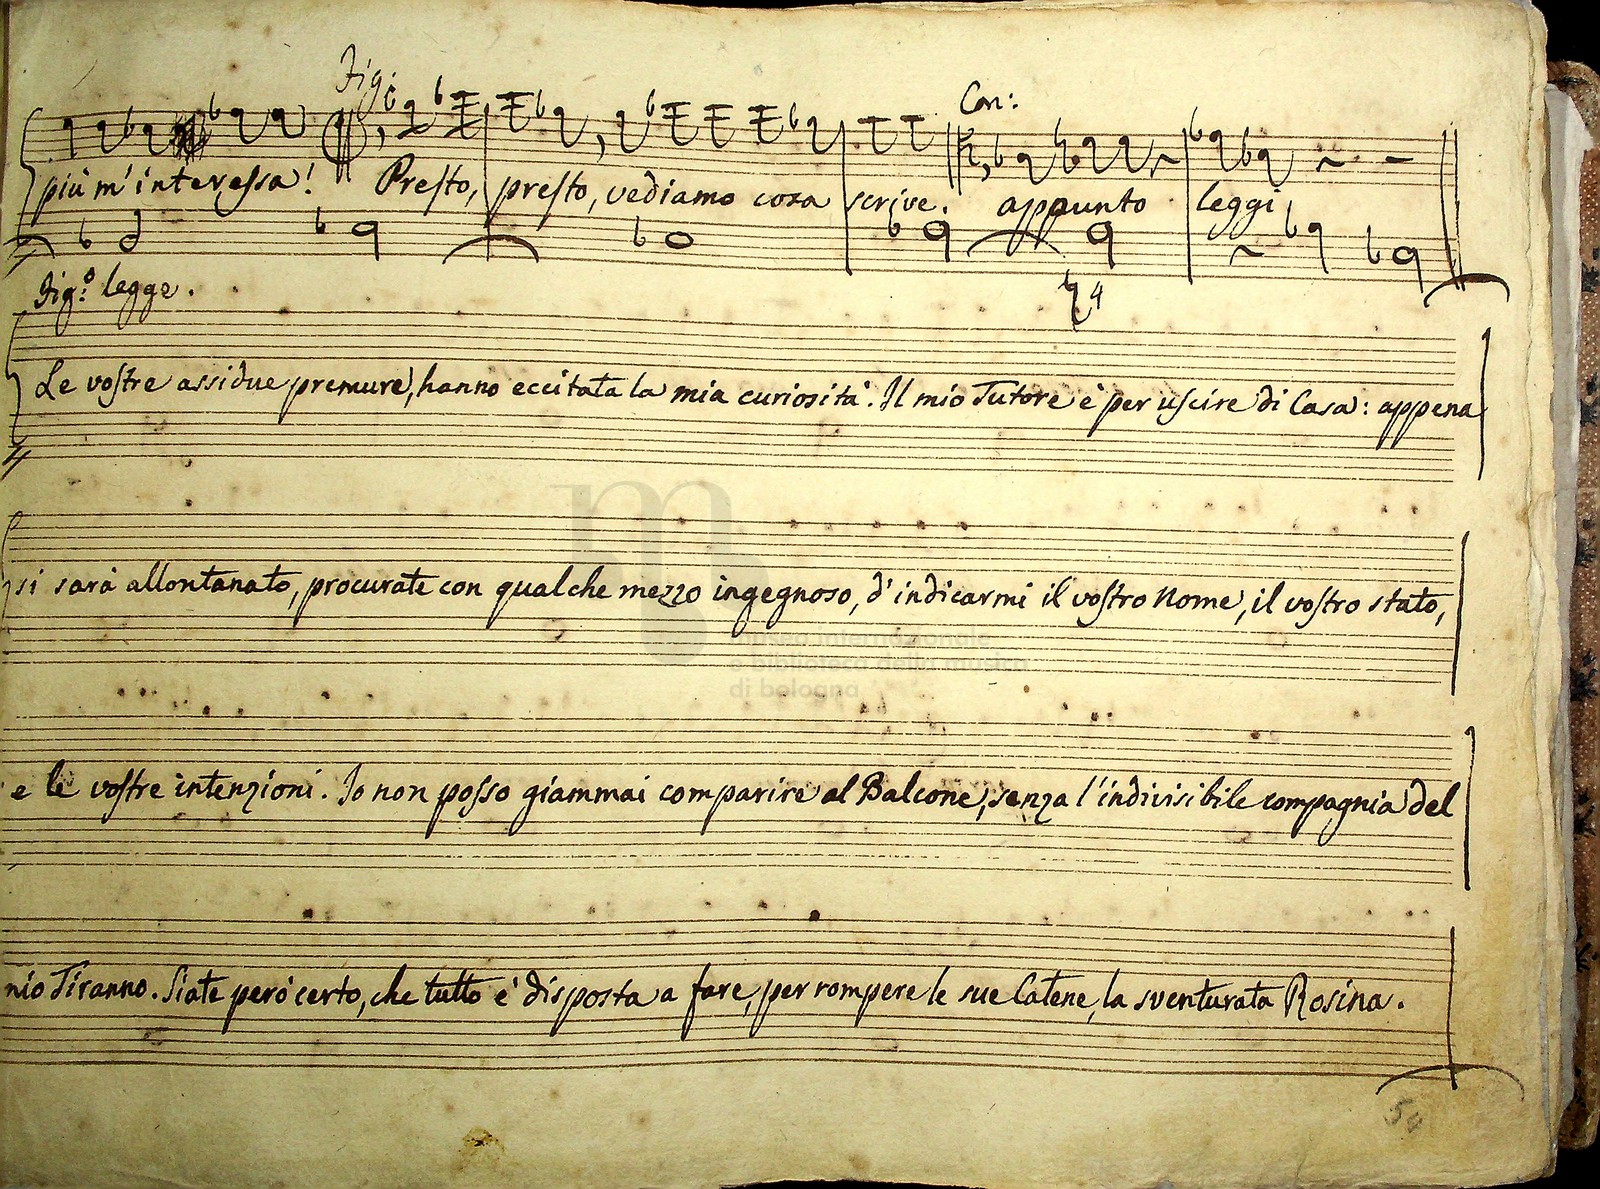 Fig: Con:
più m'interessa! Presto, presto, vediamo cosa scrive. appunto leggi
4
Fig:º legge.
Le vostre assidue premure, hanno eccitata la mia curiosità. Il mio Tutore è per uscire di Casa: appena
si sarà allontanato, procurate con qualche mezzo ingegnoso, d'indicarmi il vostro Nome, il vostro stato,
museo internazionale
e biblioteca della musica
di bologna
e le vostre intenzioni. Io non posso giammai comparire al Balcone, senza l'indivisibile compagnia del
mio Tiranno. Siate però certo, che tutto è disposta a fare, per rompere le sue Catene, la sventurata Rosina.
54